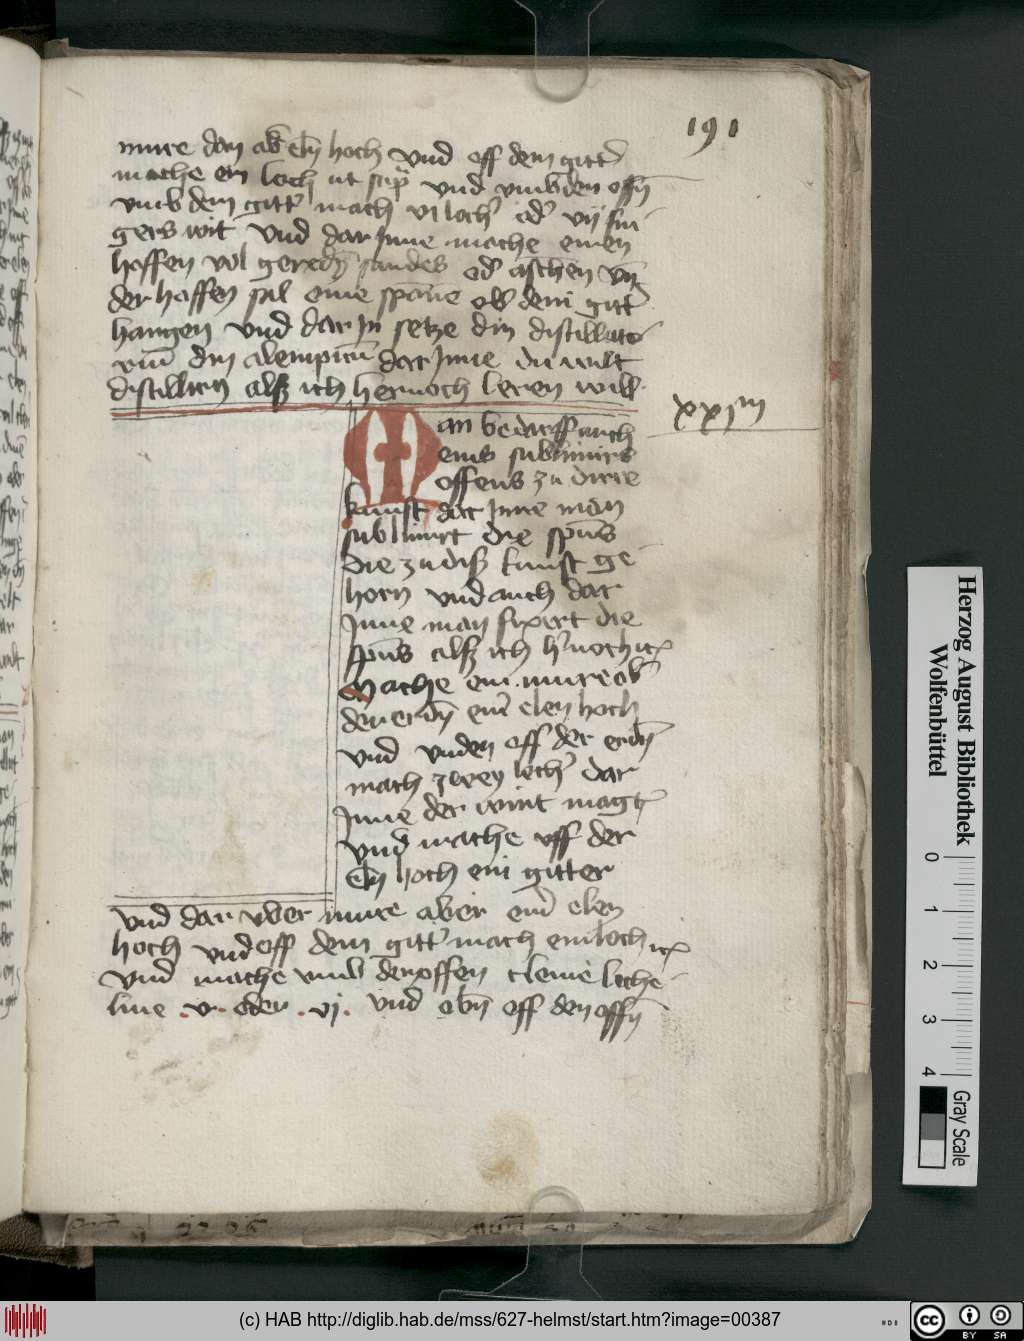 191
mure dan ab eln hoch vnd off dem gitter
mache ein loch ut supra vnd vmb den offen
vmb dem gitter mach vi locher oder vij fin
gers wit vnd dar Inne mache einen
haffen vol sandes oder aschen vnd
der haffen sal eine spanne ob dem gitter
hangen vnd dar In setze din distillato
rium din alempicum dar Inne du wilt
distillirn alß ich hernoch leren will
xxiiii
Man bedarff auch
eins sublimirs
offens zu dirre
kunst dar Inne man
sublimirt die spiritus
die zu diß kunst ge
horn vnd auch dar
Inne man fixert die
spiritus alß ich hernoch etc
Mache ein mure ob
der erden einer elen hoch
vnd vnden off der erden
mach zwey locher dar
Inne der wint mag
vnd mache vff der
eln hoch ein gitter
vnd dar vber mure aber einer elen
hoch vnd off dem gitter mach ein loch etc
vnd mache vmb den offen cleine loche
line .v. oder .vj. vnd oben off den offen
Herzog August Bibliothek
Wolfenbüttel
0 1 2 3 4
Gray Scale
(c) HAB http://diglib.hab.de/mss/627-helmst/start.htm?image=00387
cc BY SA